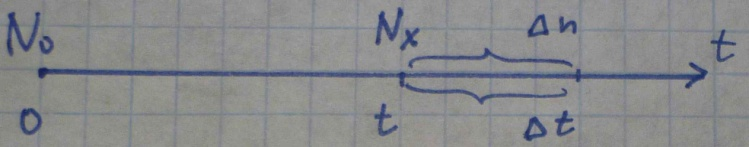 N₀ Nₓ Δn t
0 t Δt